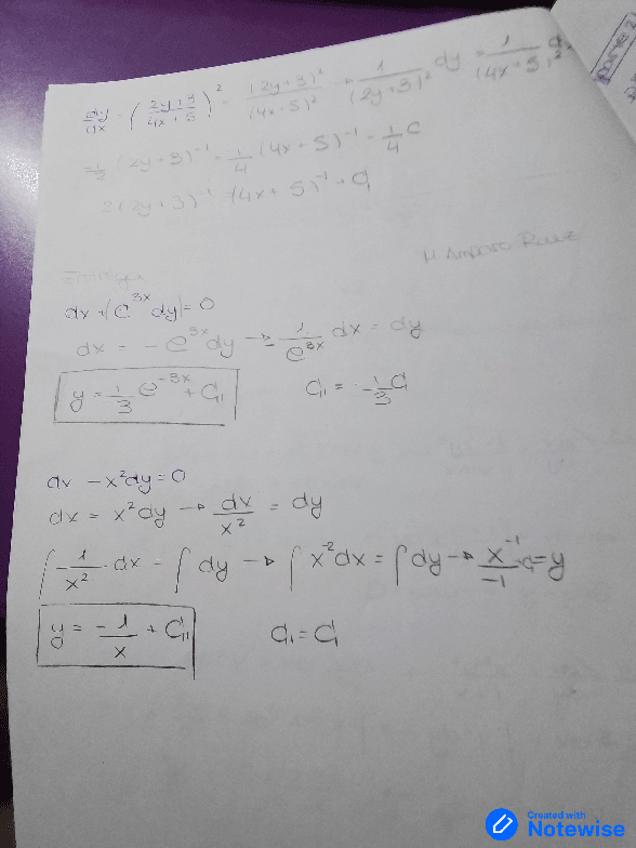 dy/dx = ( (2y+3)/(4x+5) )² = (2y+3)²/(4x+5)² → 1/(2y+3)² dy = 1/(4x+5)² dx
= 1/2 (2y+3)⁻¹ = 1/4 (4x+5)⁻¹ - 1/4 C
2(2y+3)⁻¹ (4x+5)⁻¹ + C₁
M. Amparo Ruiz
dx + (e^3x dy) = 0
dx = -e^3x dy → - 1/e^3x dx = dy
y = 1/3 e^-3x + C₁₁
C₁₁ = -1/3 C₁
dx - x²dy = 0
dx = x²dy → dx/x² = dy
∫ -1/x² · dx = ∫ dy → ∫ x⁻² dx = ∫ dy → x⁻¹/-1 · C = y
y = -1/x + C₁₁
C₁ = C₁
Created with
Notewise